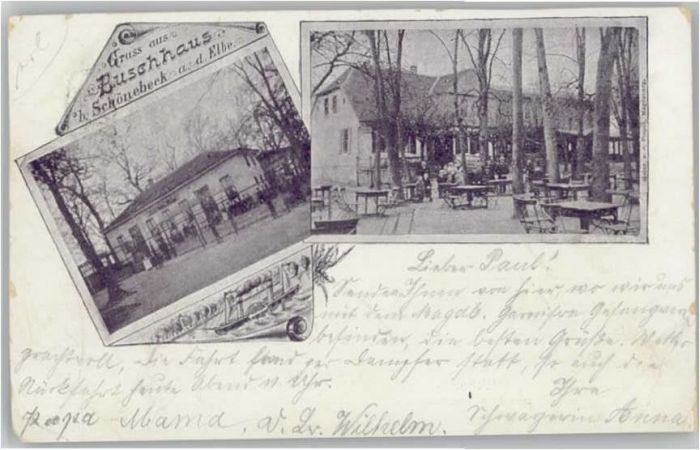 Gruss aus
Buschhaus
b. Schönebeck a. d. Elbe.
Lieber Paul!
Senden Ihnen von hier, wo wir uns
mit dem Magdb. Garnison Gesangver.
befinden, die besten Grüße. Wetter
prachtvoll, die Fahrt fand per Dampfer statt, so auch die
Rückfahrt heute Abend 11 Uhr.
Ihre
Papa Mama, d. Br. Wilhelm. Schwägerin Anna